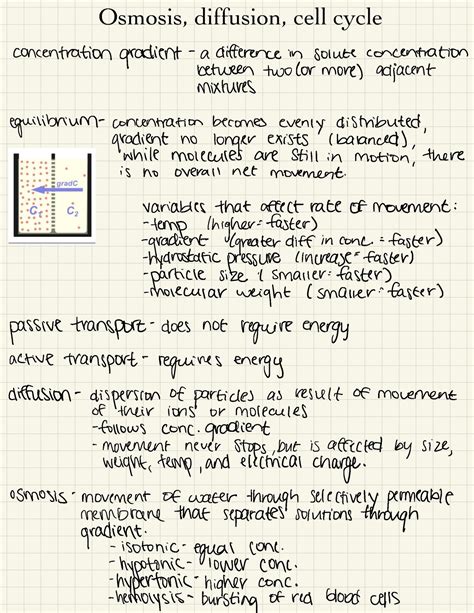 Osmosis, diffusion, cell cycle
concentration gradient - a difference in solute concentration
between two (or more) adjacent
mixtures
equilibrium - concentration becomes evenly distributed,
gradient no longer exists (balanced),
while molecules are still in motion, there
is no overall net movement.
gradC
C1 C2
variables that affect rate of movement:
- temp (higher = faster)
- gradient (greater diff in conc. = faster)
- hydrostatic pressure (increase = faster)
- particle size (smaller = faster)
- molecular weight (smaller = faster)
passive transport - does not require energy
active transport - requires energy
diffusion - dispersion of particles as result of movement
of their ions or molecules
- follows conc. gradient
- movement never stops, but is affected by size,
weight, temp, and electrical charge.
osmosis - movement of water through selectively permeable
membrane that separates solutions through
gradient.
- isotonic - equal conc.
- hypotonic - lower conc.
- hypertonic - higher conc.
- hemolysis - bursting of red blood cells